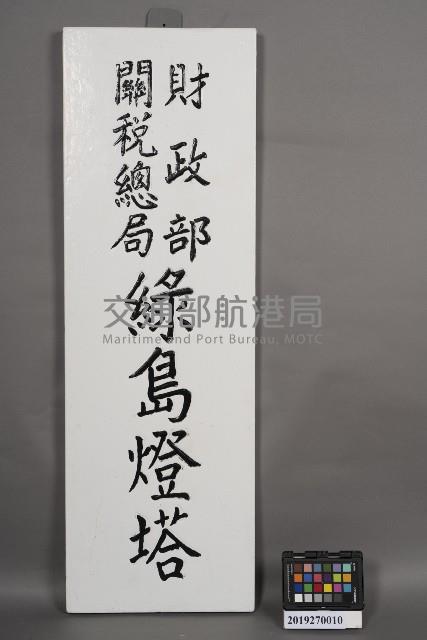 財政部
關税總局
綠島燈塔
交通部航港局
Maritime and Port Bureau, MOTC
2019270010